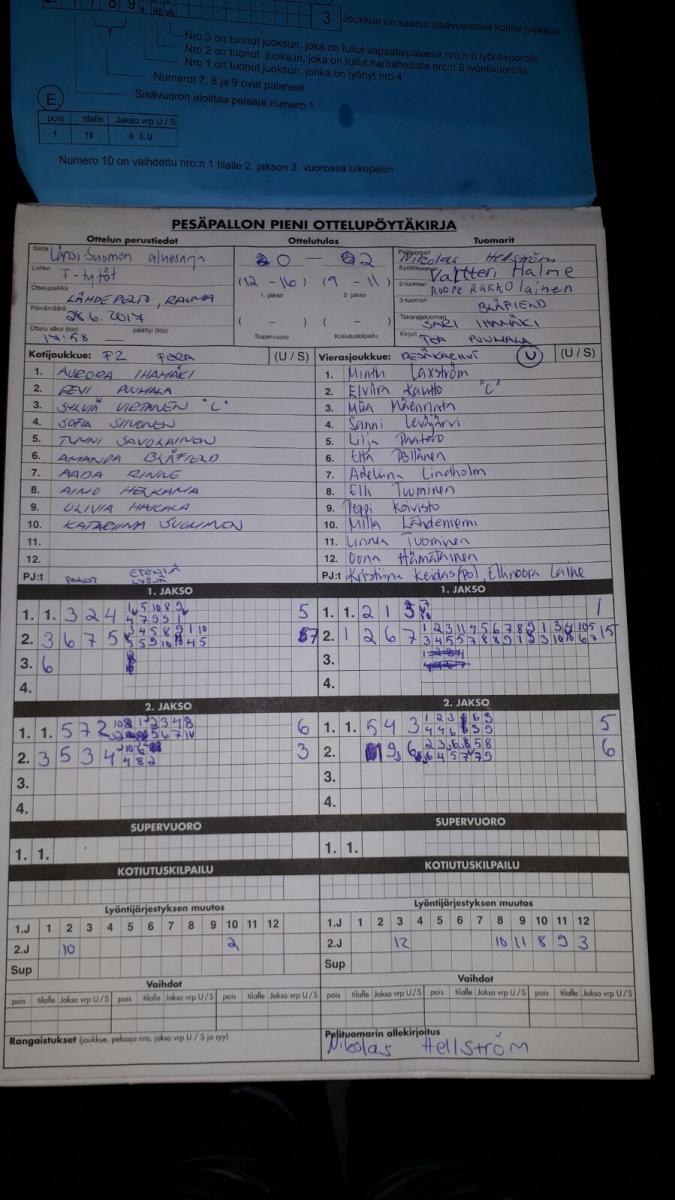 3 Joukkue on saanut sisävuorossa kolme juoksua
Nro 3 on tuonut juoksun, joka on tullut vapaataipaleella nro:n 6 lyöntivuorolla
Nro 2 on tuonut juoksun, joka on tullut harhaheitolla nro:n 5 lyöntivuorolla
Nro 1 on tuonut juoksun, jonka on lyönyt nro 4
Numerot 7, 8 ja 9 ovat palaneet
Sisävuoron aloittaa pelaaja numero 1
E.
pois tilalle Jakso vrp U / S
1 10 II 3. U
Numero 10 on vaihdettu nro:n 1 tilalle 2. jakson 3. vuorossa ulkopeliin
PESÄPALLON PIENI OTTELUPÖYTÄKIRJA
Ottelun perustiedot Ottelutulos Tuomarit
Sarja Länsi-Suomen aluesarja
Lohko F-tytöt
Ottelupaikka LÄHDEPELTO, RAUMA
Päivämäärä 28.6.2017
Ottelu alkoi (klo) 17:58 päättyi (klo)
0 — 2
(12 - 16) (9 - 11)
1. jakso 2. jakso
( - ) ( - )
Supervuoro Kotiutuskilpailu
Pelituomari Nikolas Hellström
Syöttötuomari Valtteri Halme
2-tuomari ROOPE RAKKOLAINEN
3-tuomari BLÅFIELD
Takarajatuomari SARI IHAMÄKI
Kirjuri TEA PUUMALA
Kotijoukkue: FERA (U / S)
1. AURORA IHAMÄKI
2. EEVI PUUMALA
3. SYLVIA VIRTANEN "C"
4. SOFIA SIIVONEN
5. TUNNI SAVOLAINEN
6. AMANDA BLÅFIELD
7. AADA RINNE
8. AINO HELKAMA
9. OLIVIA HAKALA
10. KATARIINA SUOMINEN
11.
12.
PJ:t
Vierasjoukkue: PESÄKARHUT U (U / S)
1. Minttu Laxström
2. Elviira Kautto "C"
3. Miia Mäenranta
4. Sanni Leväjärvi
5. Lilja Pantero
6. Etta Pöllänen
7. Adeliina Lindholm
8. Elli Tuominen
9. Peppi Koivisto
10. Milla Lähdeniemi
11. Linnea Tuominen
12. Oona Hämäläinen
PJ:t Kristiina Keidas(po), Ellinoora Laine
1. JAKSO
1. 1. 3 2 4 5
2. 3 6 7 5 7
3. 6
4.
1. JAKSO
1. 1. 2 1 3 1
2. 1 2 6 7 15
3.
4.
2. JAKSO
1. 1. 5 7 2 6
2. 3 5 3 4 3
3.
4.
2. JAKSO
1. 1. 5 4 3 5
2. 9 6 6
3.
4.
SUPERVUORO
1. 1.
SUPERVUORO
1. 1.
KOTIUTUSKILPAILU
KOTIUTUSKILPAILU
Lyöntijärjestyksen muutos
1.J 1 2 3 4 5 6 7 8 9 10 11 12
2.J 10 2
Sup
Lyöntijärjestyksen muutos
1.J 1 2 3 4 5 6 7 8 9 10 11 12
2.J 12 10 11 8 9 3
Sup
Vaihdot
pois tilalle Jakso vrp U / S pois tilalle Jakso vrp U / S pois tilalle Jakso vrp U / S
Vaihdot
pois tilalle Jakso vrp U / S pois tilalle Jakso vrp U / S pois tilalle Jakso vrp U / S
Rangaistukset (joukkue, pelaaja nro, jakso vrp U / S ja syy)
Pelituomarin allekirjoitus
Nikolas Hellström